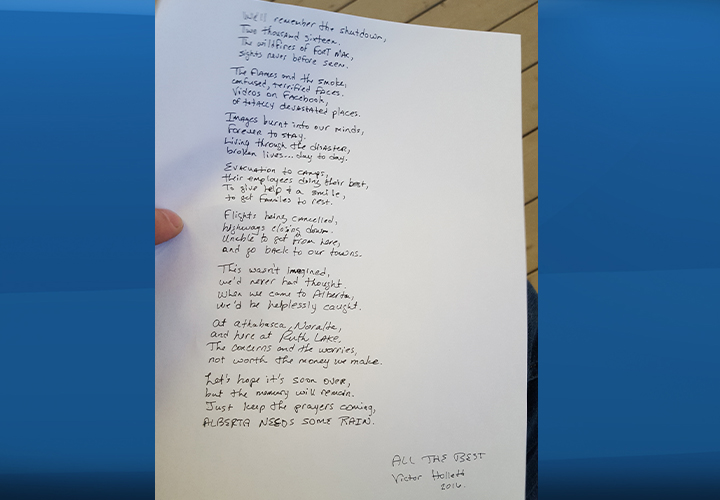 We'll remember the shutdown,
Two thousand sixteen.
The wildfires of FORT MAC,
sights never before seen.
The FLAMES and the smoke,
confused, terrified faces.
Videos on Facebook,
of totally devastated places.
Images burnt into our minds,
forever to stay.
Living through the disaster,
broken lives... day to day.
Evacuation to camps,
their employees doing their best,
To give help & a smile,
to get families to rest.
Flights being cancelled,
highways closing down.
Unable to get from here,
and go back to our towns.
This wasn't imagined,
we'd never had thought.
When we came to Alberta,
we'd be helplessly caught.
At athabasca, Noralta,
and here at Ruth LAKE.
The concerns and the worries,
not worth the money we make.
Let's hope it's soon OVER,
but the memory will remain.
Just keep the prayers coming,
ALBERTA NEEDS SOME RAIN.
ALL THE BEST
Victor Hollett
2016.